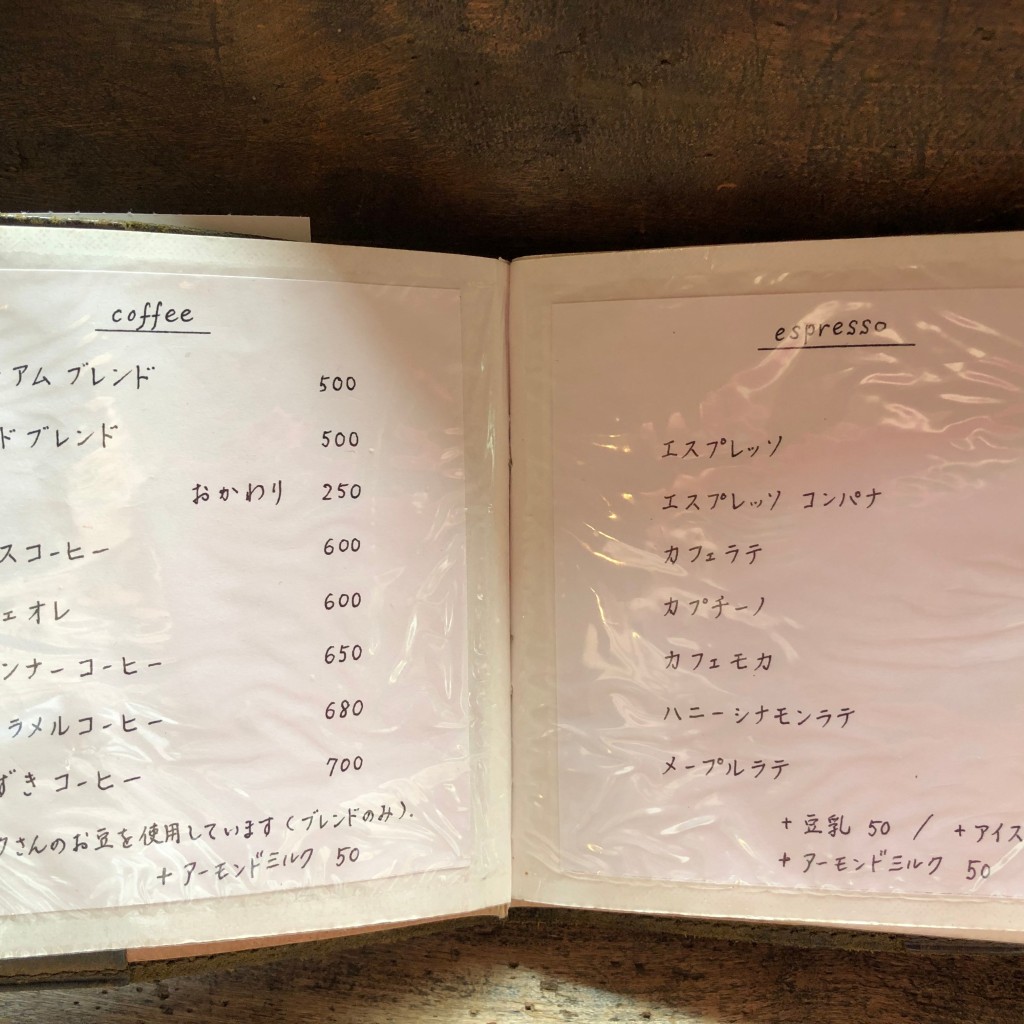 coffee
アム ブレンド 500
ド ブレンド 500
おかわり 250
スコーヒー 600
ェオレ 600
ンナーコーヒー 650
ラメルコーヒー 680
ずき コーヒー 700
クさんのお豆を使用しています(ブレンドのみ).
+ アーモンドミルク 50
espresso
エスプレッソ
エスプレッソ コンパナ
カフェラテ
カプチーノ
カフェモカ
ハニーシナモンラテ
メープルラテ
+ 豆乳 50 / + アイス
+ アーモンドミルク 50